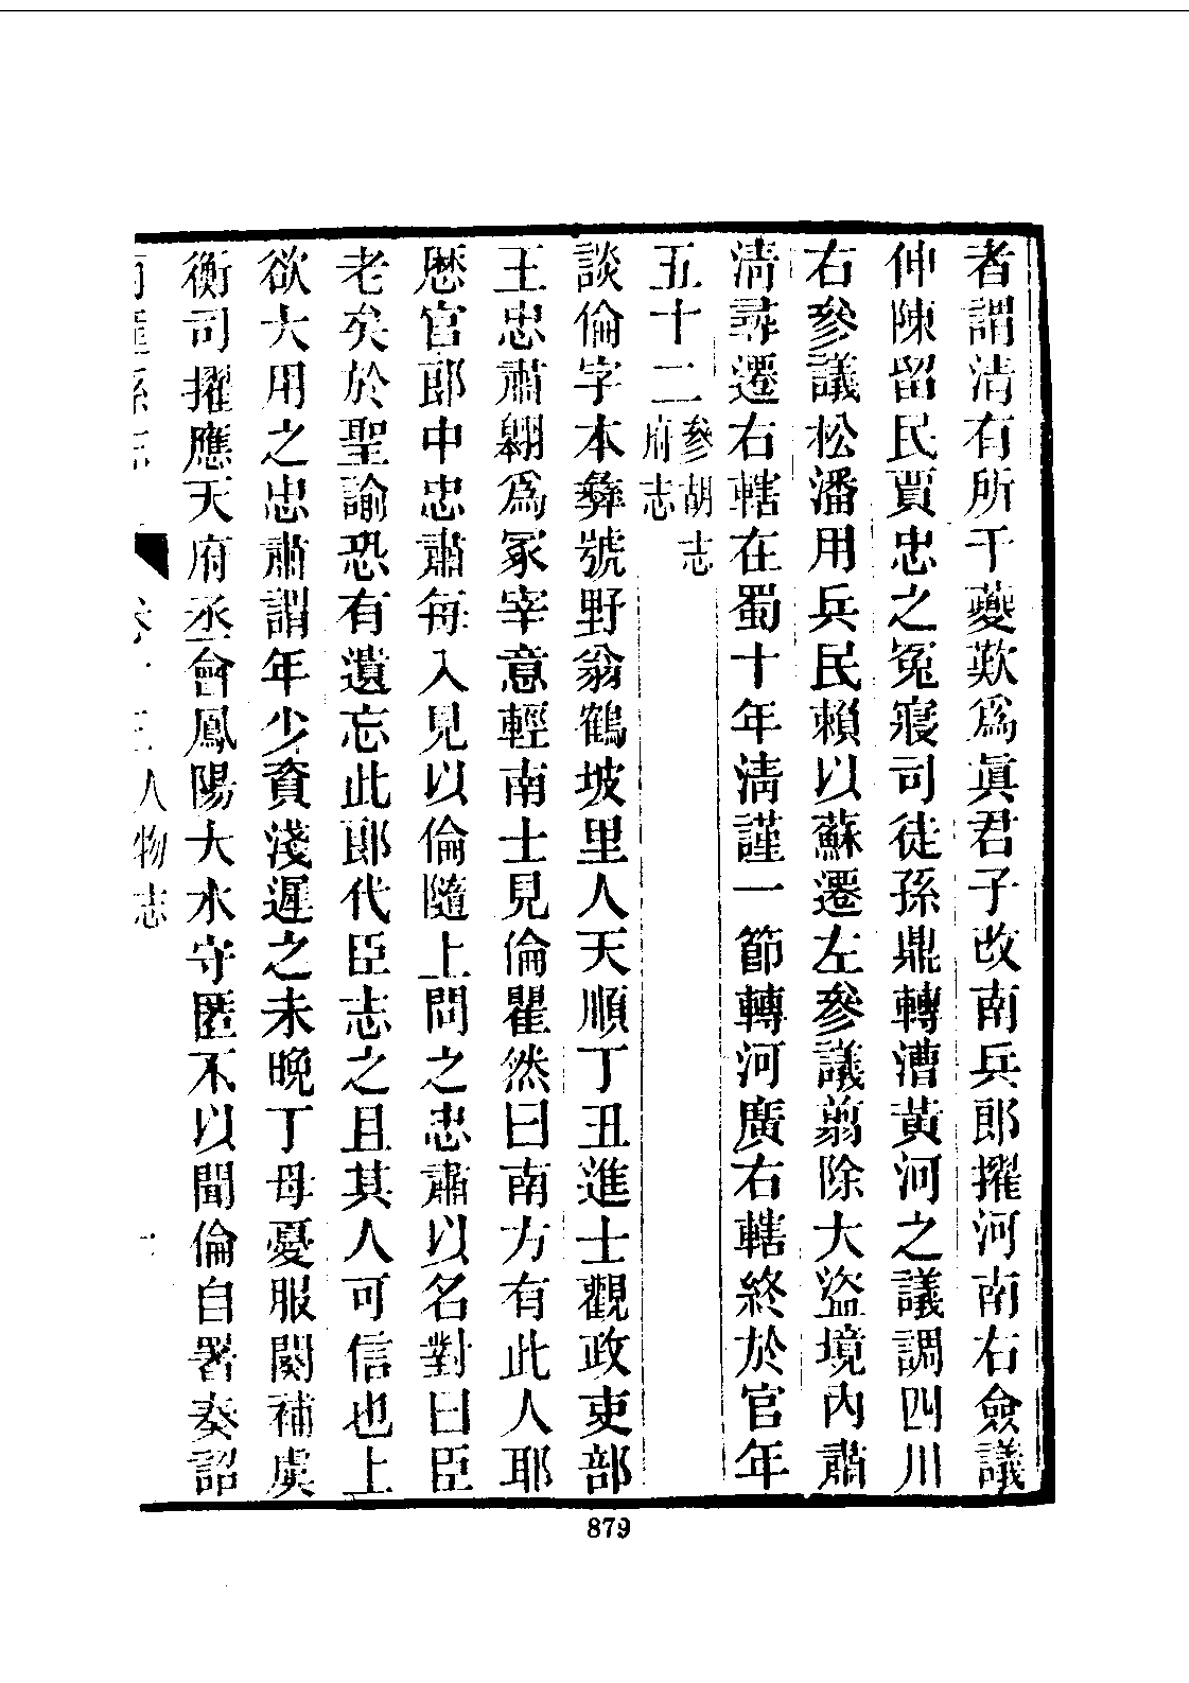 者謂清有所干夔歎爲眞君子改南兵郎擢河南右僉議
仲陳留民賈忠之冤寢司徒孫鼎轉漕黃河之議調四川
右參議松潘用兵民賴以蘇遷左參議翦除大盜境內肅
淸尋遷右轄在蜀十年淸謹一節轉河廣右轄終於官年
五十二參胡志府志
談倫字本彝號野翁鶴坡里人天順丁丑進士觀政吏部
王忠肅翺爲冢宰意輕南士見倫瞿然曰南方有此人耶
歷官郎中忠肅每入見以倫隨上問之忠肅以名對曰臣
老矣於聖諭恐有遺忘此郎代臣志之且其人可信也上
欲大用之忠肅謂年少資淺遲之未晚丁母憂服闋補虞
衡司擢應天府丞會鳳陽大水守匿不以聞倫自署奏詔
人物志
879